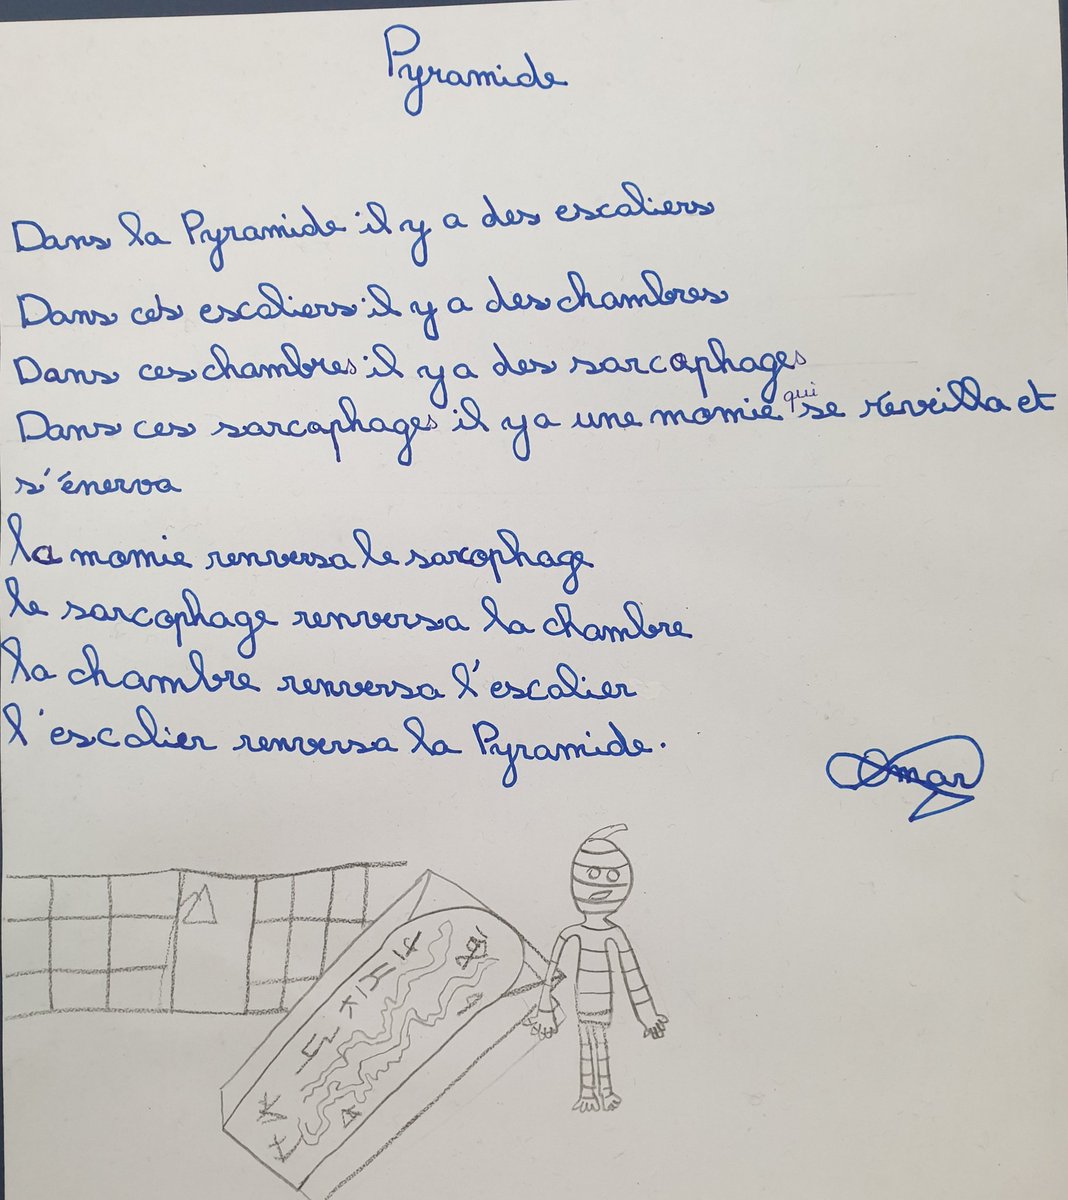 Pyramide
Dans la Pyramide il y a des escaliers
Dans ces escaliers il y a des chambres
Dans ces chambres il y a des sarcophages
Dans ces sarcophages il y a une momie qui se réveilla et
s'énerva
la momie renversa le sarcophage
le sarcophage renversa la chambre
la chambre renversa l'escalier
l'escalier renversa la Pyramide.
Omar